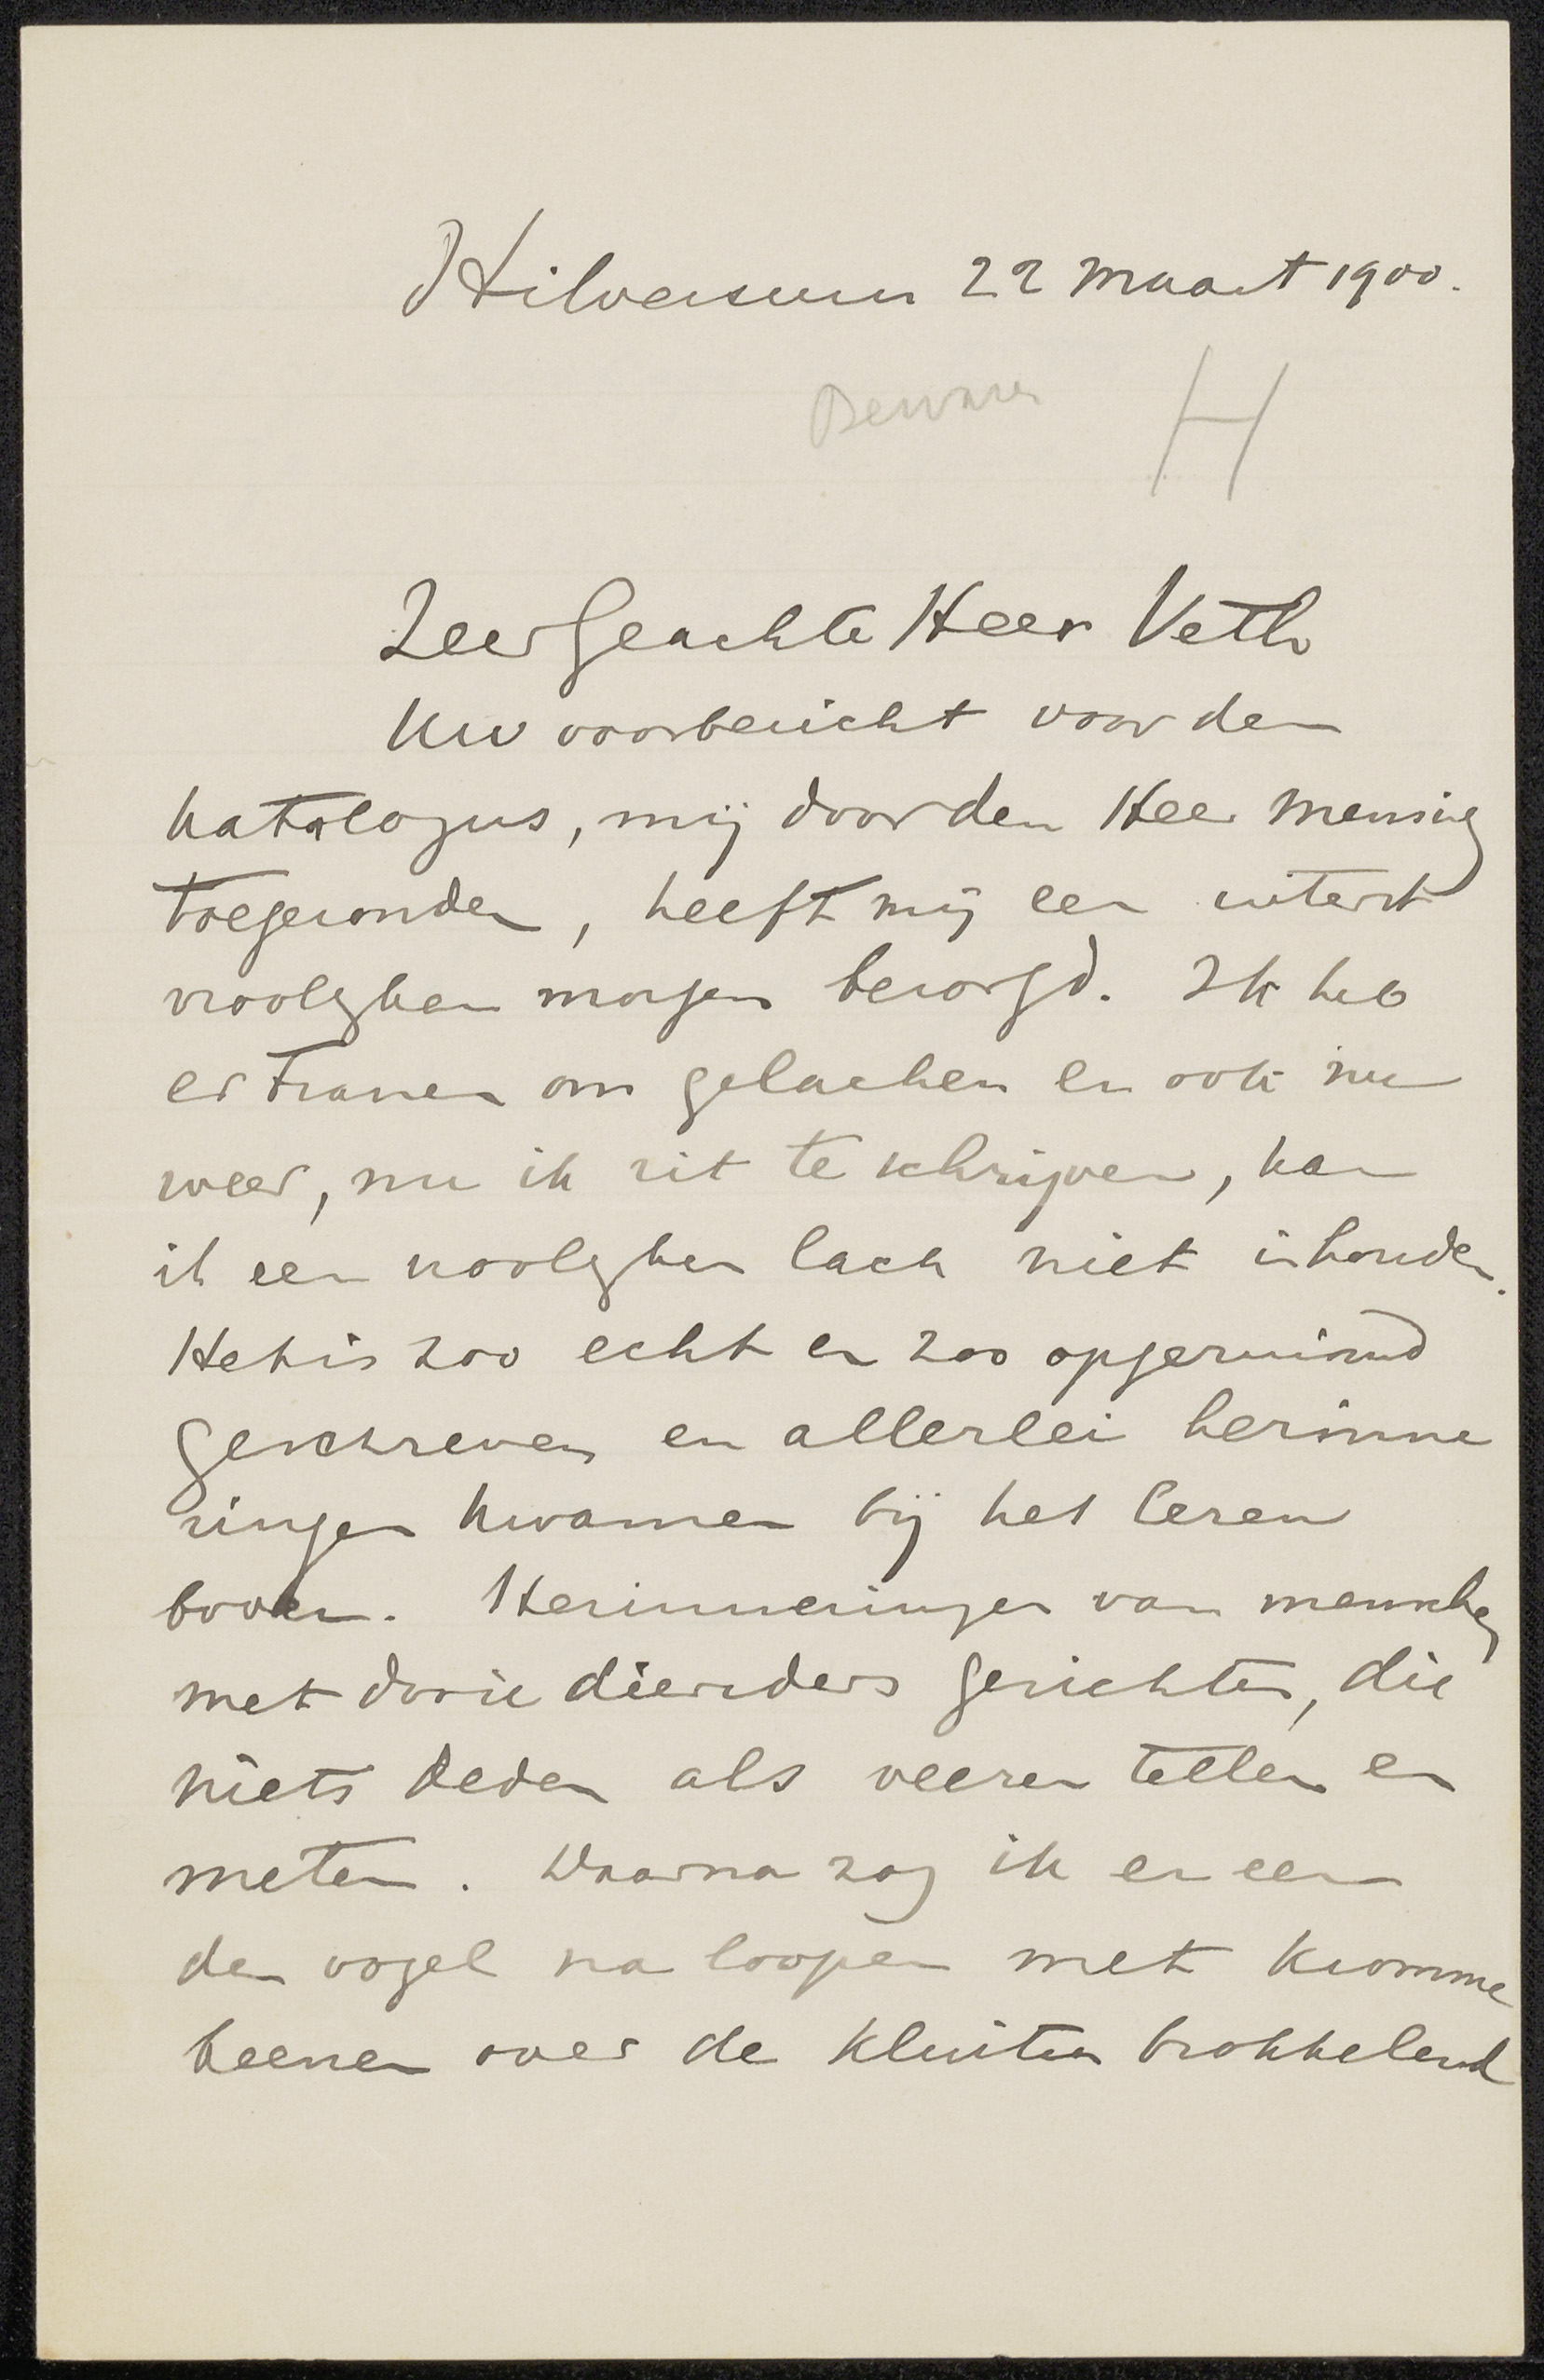 Hilversum 22 Maart 1900.
Bewaren H
Zeer Geachte Heer Veth
Uw voorbericht voor den
katalogus, mij door den Heer Mensing
toegezonden, heeft mij een uiterst
vroolyken morgen bezorgd. Ik heb
er tranen om gelachen en ook nu
weer, nu ik zit te schrijven, kan
ik een vroolyken lach niet inhouden.
Het is zoo echt en zoo opgeruimd
geschreven en allerlei herinne
ringen kwamen bij het lezen
boven. Herinneringen van menschen
met gezichten, die
niets deden als veeren tellen en
meten. Daarna zag ik er een
den vogel na loopen met kromme
beenen over de kluiten brokkelend